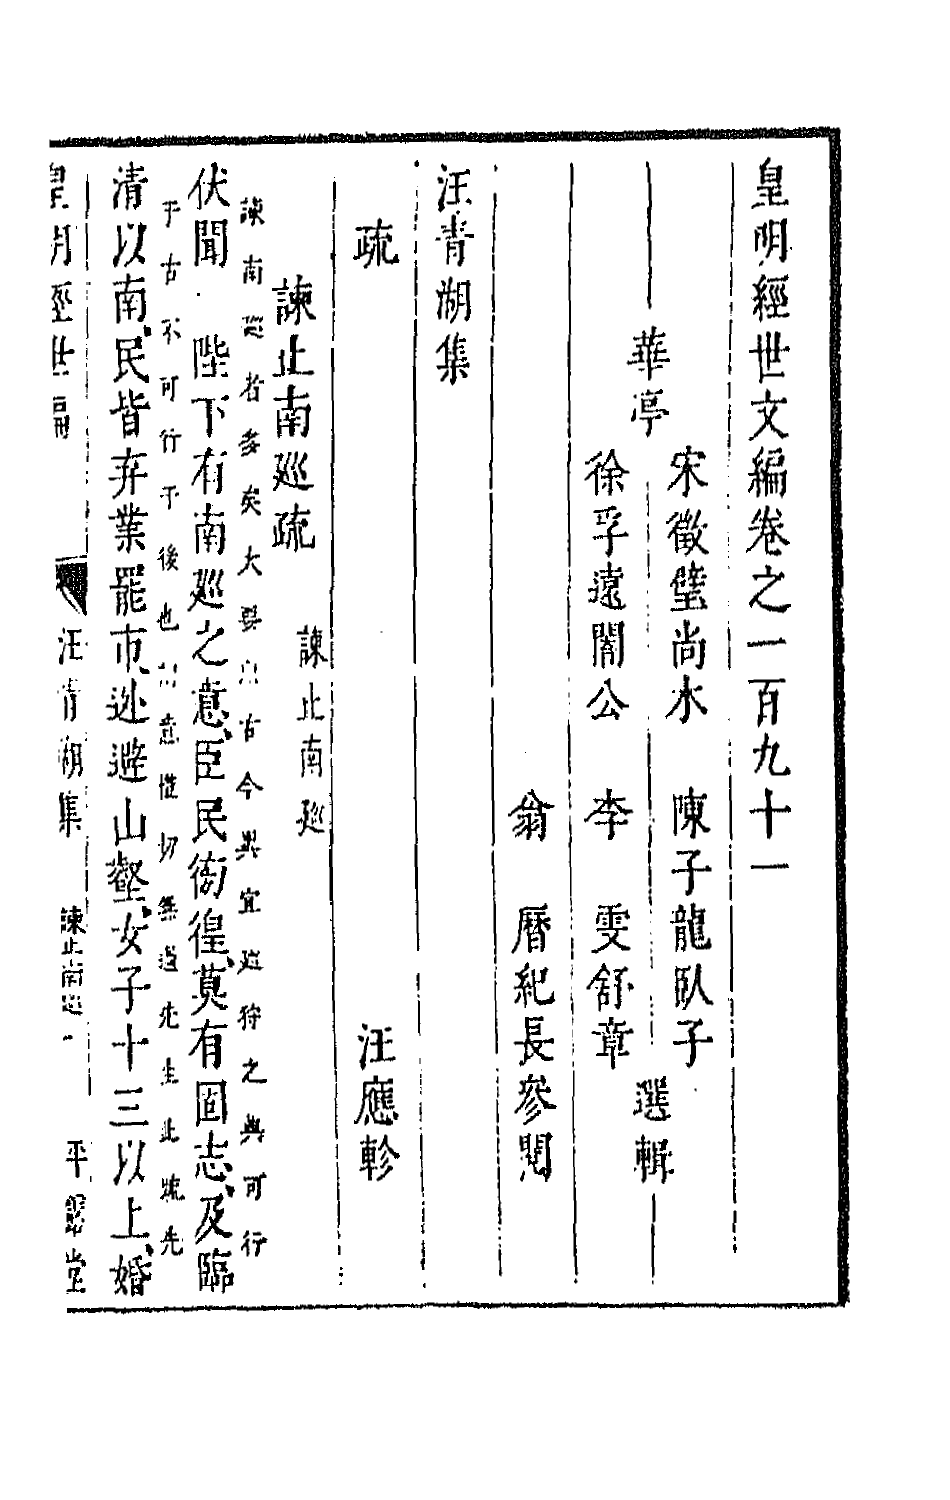 皇明經世文編卷之一百九十一
華亭
宋徵璧尚木　陳子龍臥子
徐孚遠闇公　李　雯舒章
選輯
翁　曆紀長參閱
汪青湖集
疏　汪應軫
諫止南廵疏　諫止南廵
諫南廵者多矣大要以古今異宜廵狩之典可行
于古不可行于後也 意愷切無過先生此疏先
伏聞　陛下有南廵之意、臣民徬徨、莫有固志、及臨
清以南、民皆弃業罷市、逃避山壑、女子十三以上、婚
皇明經世編　汪青湖集　諫止南廵　一　平露堂